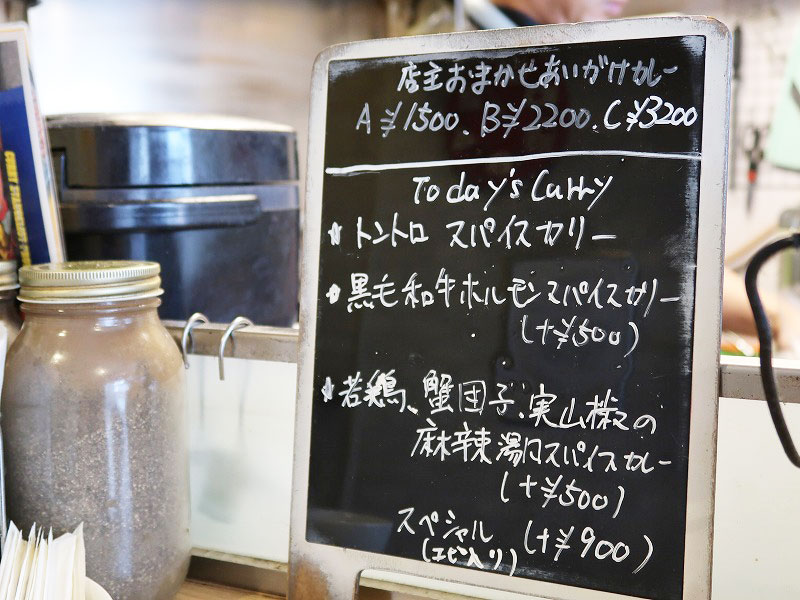 店主おまかせあいがけカレー
A ¥1500、B¥2200、C¥3200
Today's Curry
★トントロ スパイスカリー
★黒毛和牛ホルモンスパイスカリー
(+¥500)
★若鶏、蟹団子、実山椒の
麻辣湯口スパイスカレー
(+¥500)
スペシャル (+¥900)
(エビ入り)